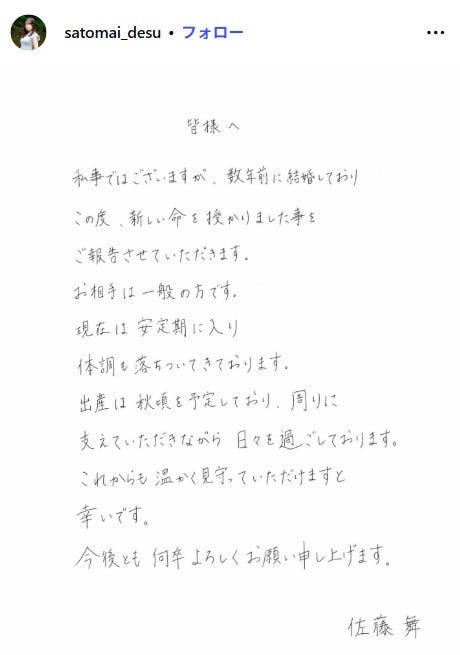 satomai_desu • フォロー
皆様へ
私事ではございますが、数年前に結婚しており
この度、新しい命を授かりました事を
ご報告させていただきます。
お相手は一般の方です。
現在は安定期に入り
体調も落ちついてきております。
出産は秋頃を予定しており、周りに
支えていただきながら日々を過ごしております。
これからも温かく見守っていただけますと
幸いです。
今後とも何卒よろしくお願い申し上げます。
佐藤舞